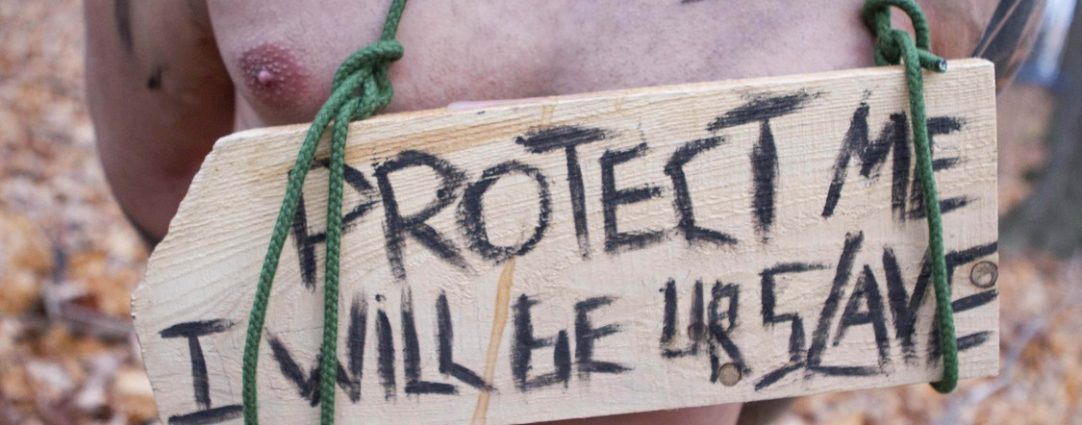 PROTECT ME
I WiLL BE UR SLAVE